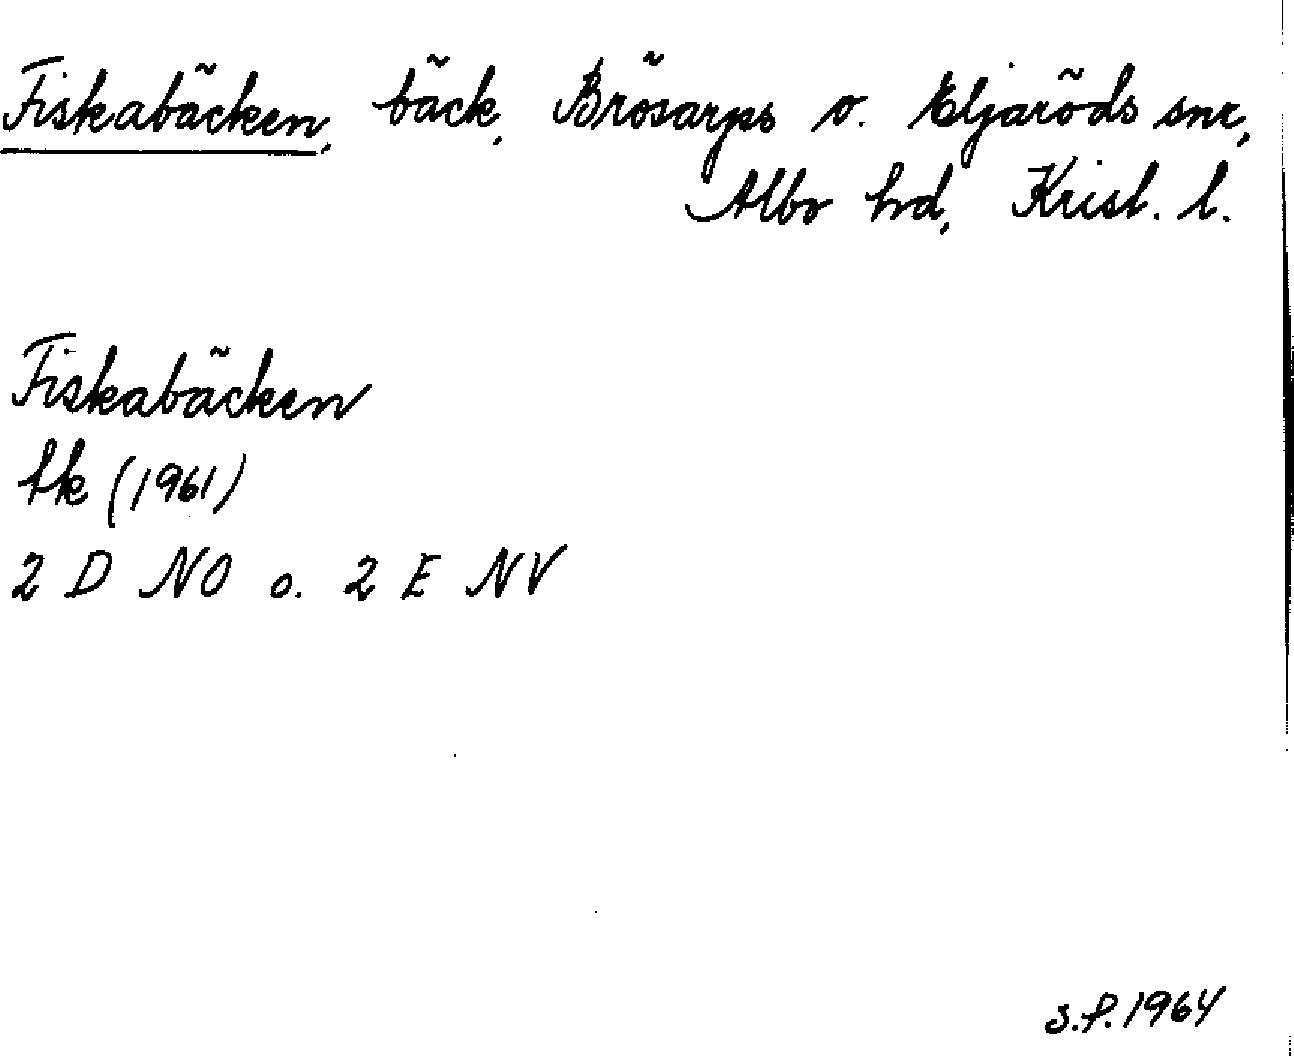 Fiskabäcken, bäck, Brösarps o. Eljaröds snr,
Albo hd, Krist. l.
Fiskabäcken
tk (1961)
2 D NO o. 2 E NV
S.P. 1964